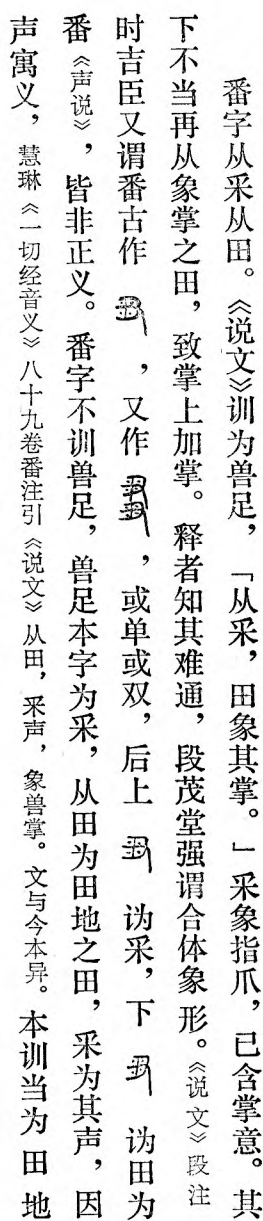 番字从釆从田。《说文》训为兽足，「从釆，田象其掌。」釆象指爪，已含掌意。其
下不当再从象掌之田，致掌上加掌。释者知其难通，段茂堂强谓合体象形。《说文》段注
时吉臣又谓番古作，又作，或单或双，后上讹釆，下讹田为
番《声说》，皆非正义。番字不训兽足，兽足本字为釆，从田为田地之田，釆为其声，因
声寓义，慧琳《一切经音义》八十九卷番注引《说文》从田，釆声，象兽掌。文与今本异。本训当为田地